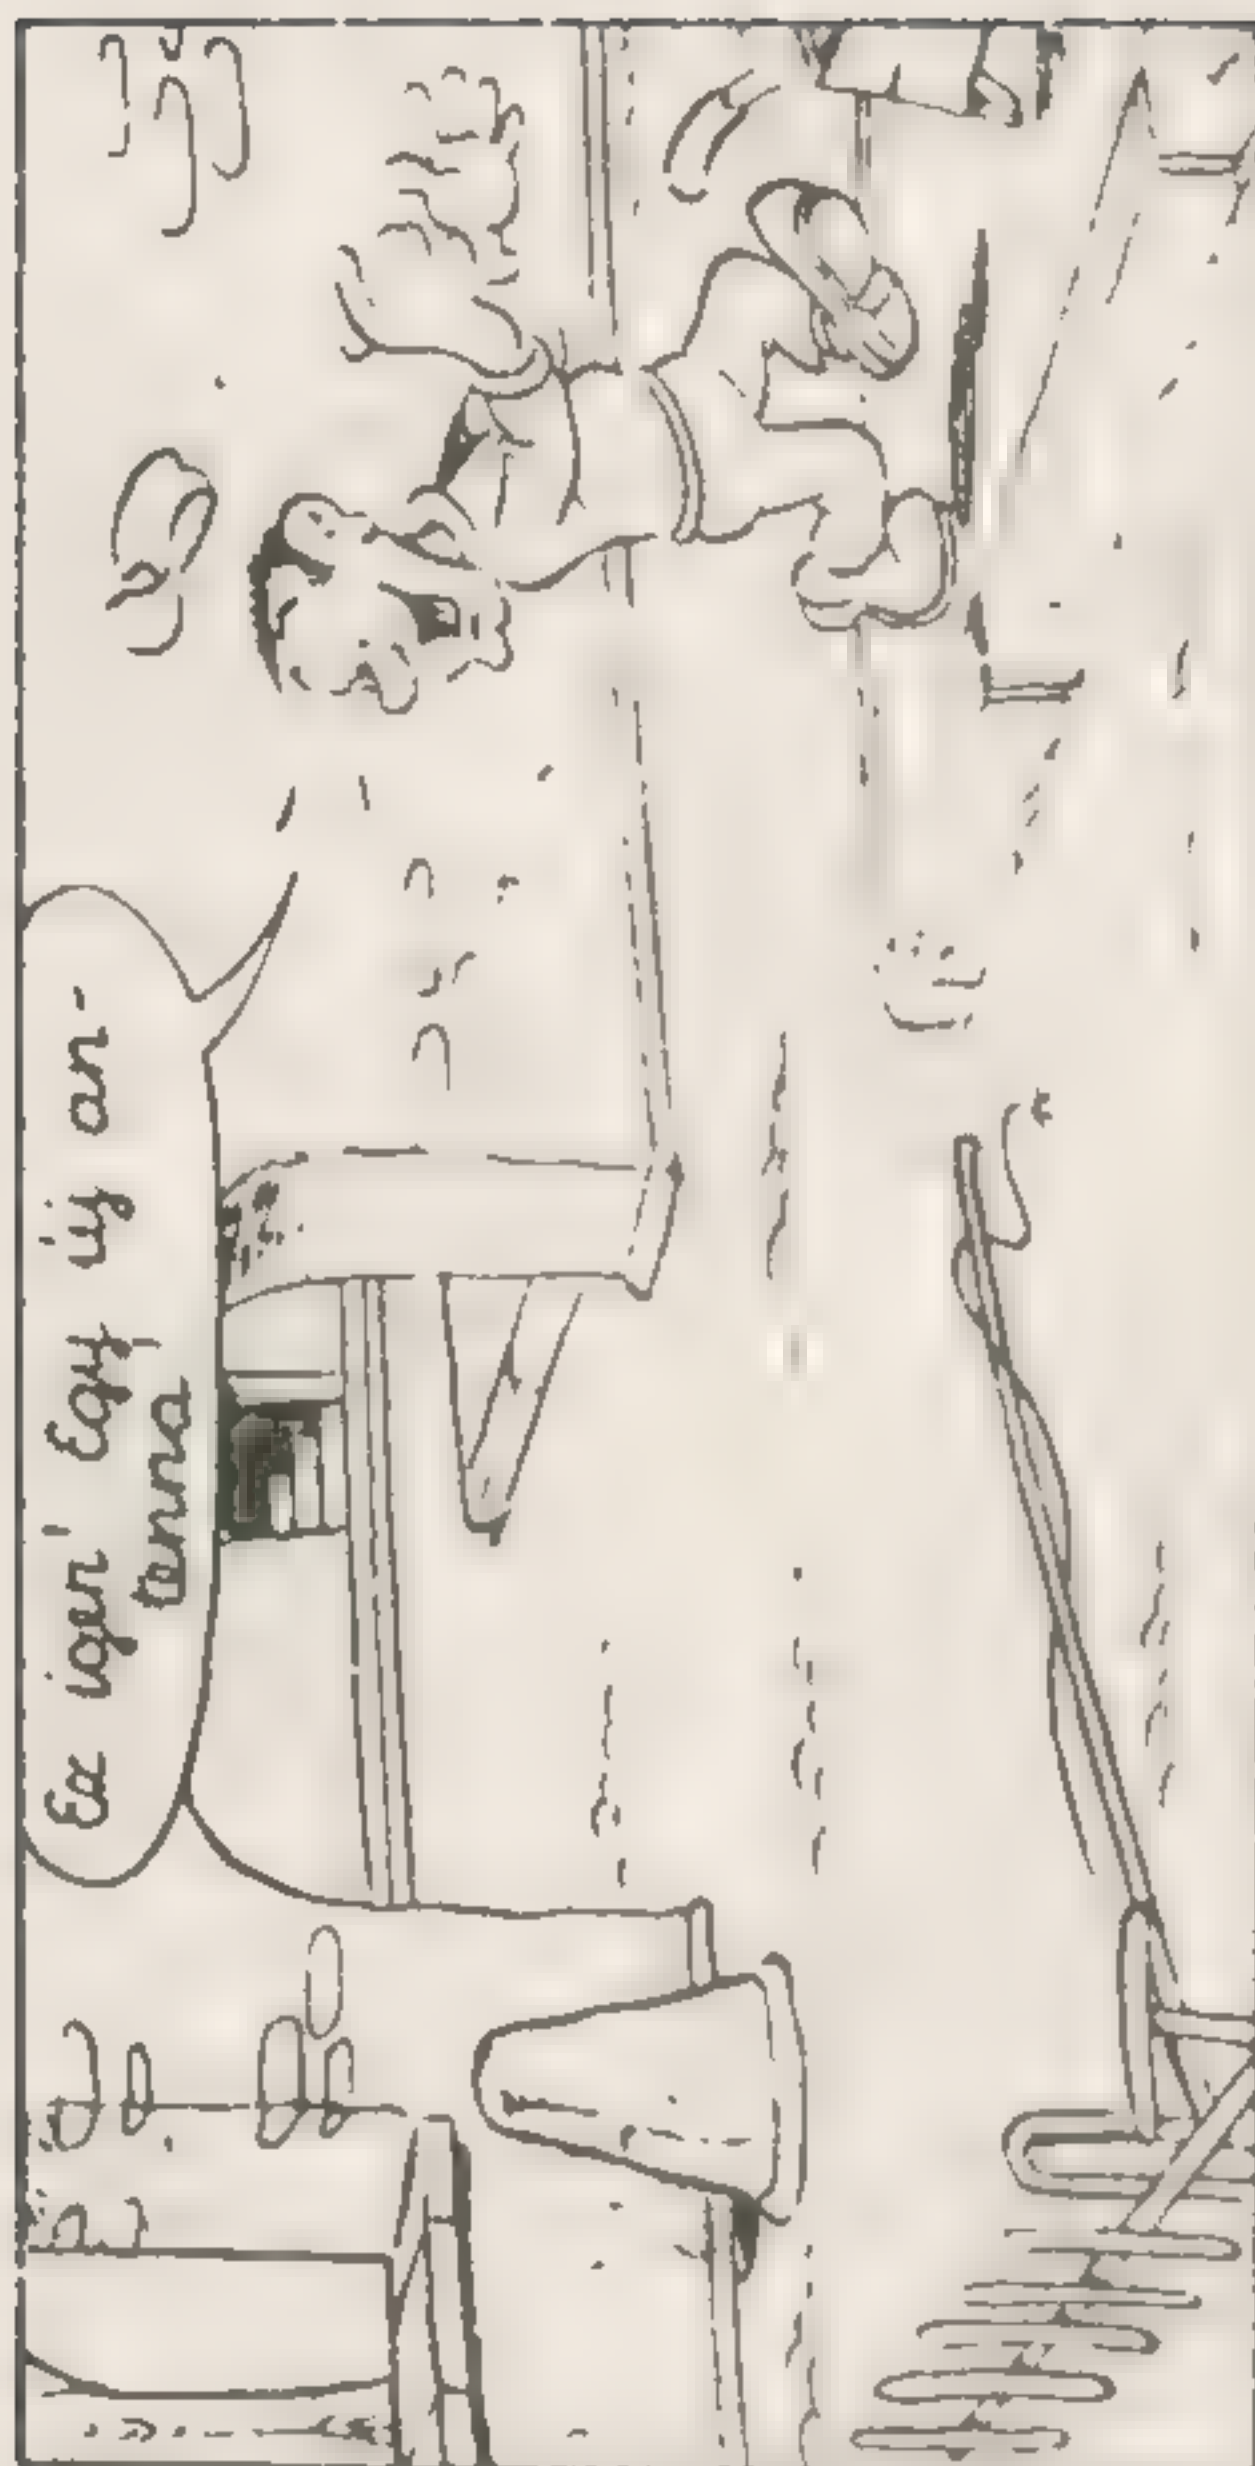 Ez igen! Egy új an-
tenna